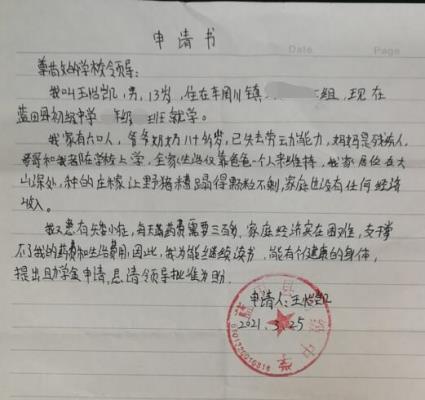 申请书
Date
Page
尊敬的学校领导：
我叫王皓凯，男，13岁，住在车周川镇 组，现在
蓝田县初级中学 年级 班就学。
我家有六口人，爷爷奶奶八十多岁，已失去劳动能力，妈妈是残疾人，
哥哥和我都在学校上学，全家生活仅靠爸爸一个人来维持，我家居位在大
山深处，种的庄稼让野猪糟蹋得颗粒不剩，家庭也没有任何经济
收入。
我又患有 ，每天 药费需要三百多，家庭经济实在困难，支撑
不了我的药费和生活费用，因此，我为能继续读书，能有个健康的身体，
提出助学金申请，恳请领导批准为盼
申请人：王皓凯
2021.3.25